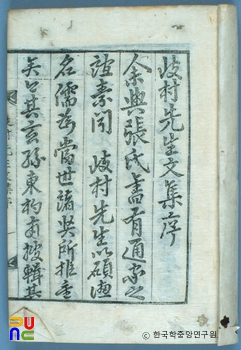 岐村先生文集序
余與張氏盖有通家之
誼素聞 岐村先生以碩德
名儒爲當世諸賢所推重
矣今其玄孫東杓甫掇輯其
PUNC
한국학중앙연구원